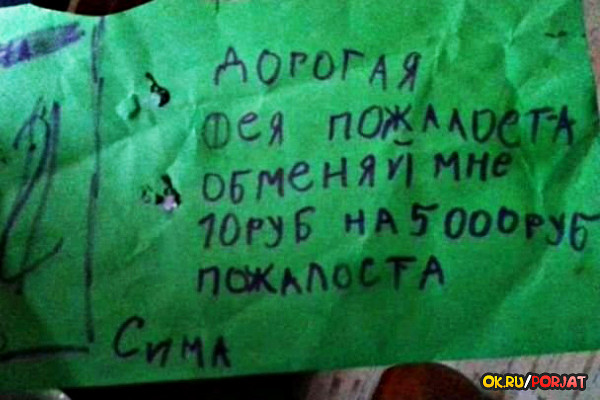 ДОРОГАЯ
ФЕЯ ПОЖАЛОСТА
ОБМЕНЯЙ МНЕ
10РУБ НА 5000РУБ
ПОЖАЛОСТА
СИМА
OK.RU/PORJAT